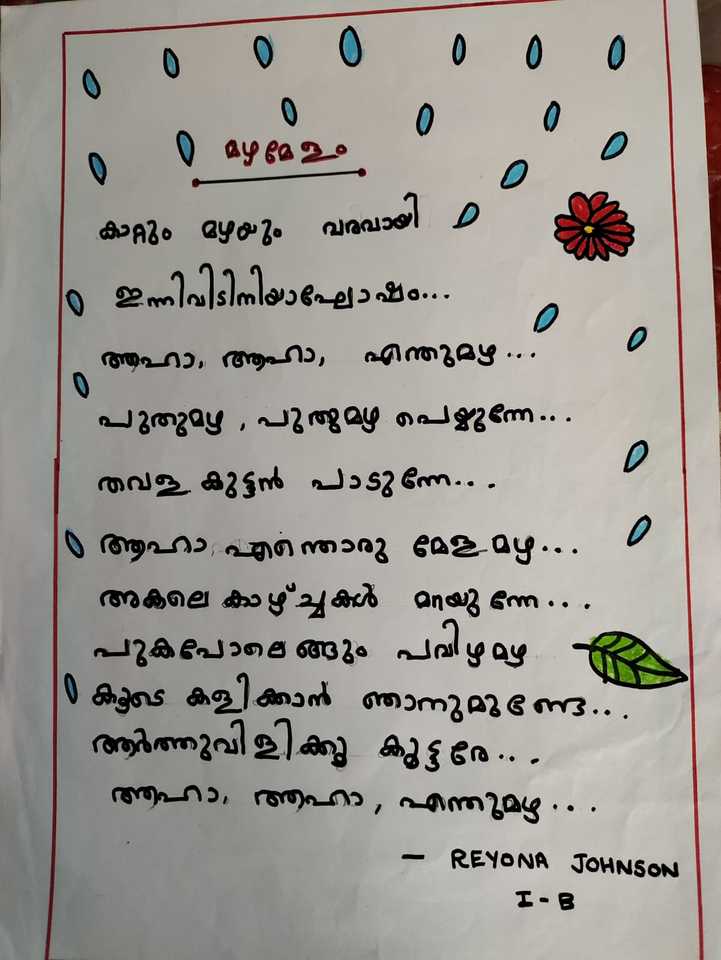 മഴമേളം
കാറ്റും മഴയും വരവായി
ഇന്നിവിടിനിയാഘോഷം...
ആഹാ, ആഹാ, എന്തുമഴ...
പുതുമഴ, പുതുമഴ പെയ്യുന്നേ...
തവള കുട്ടൻ പാടുന്നേ...
ആഹാ, എന്തൊരു മേളമഴ...
അകലെ കാഴ്ച്ചകൾ മറയുന്നേ...
പുകപോലെങ്ങും പവിഴമഴ
കൂടെ കളിക്കാൻ ഞാനുമുണ്ടേ...
ആർത്തുവിളിക്കൂ കൂട്ടരേ...
ആഹാ, ആഹാ, എന്തുമഴ...
- REYONA JOHNSON
I - B